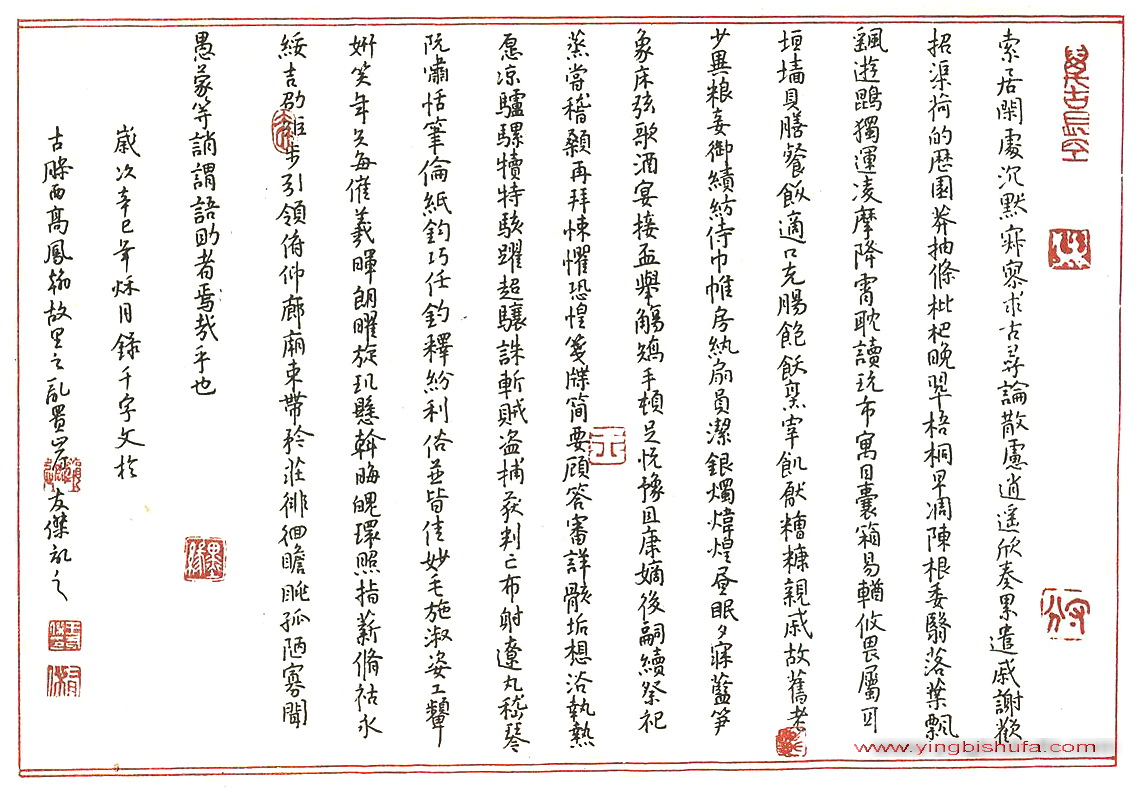 索居閑處沉默寂寥求古尋論散慮逍遙欣奏累遣戚謝歡
招渠荷的歷園莽抽條枇杷晚翠梧桐早凋陳根委翳落葉飄
颻遊鵾獨運凌摩降霄耽讀玩市寓目囊箱易輶攸畏屬耳
垣墻具膳餐飯適口充腸飽飫烹宰飢厭糟糠親戚故舊老
少異粮妾御績紡侍巾帷房紈扇員潔銀燭煒煌昼眠夕寐藍笋
象床弦歌酒宴接盃舉觴矯手頓足悦豫且康嫡後嗣續祭祀
蒸嘗稽顙再拜悚懼恐惶箋牒简要顧答審詳骸垢想浴執熱
愿凉驢騾犢特駭躍超驤誅斬賊盗捕获判亡布射遼丸嵇琴
阮嘯恬筆倫紙鈞巧任釣釋紛利俗並皆佳妙毛施淑姿工顰
妍笑年矢每催羲暉朗曜旋玑懸斡晦魄環照指薪脩祜永
綏吉劭矩步引領俯仰廊廟束帶矜莊徘徊瞻眺孤陋寡聞
愚蒙等誚謂語助者焉哉乎也
歲次辛巳年秌月錄千字文於
古膠西高鳳翰故里之乱置 友傑記之
www.yingbishufa.com